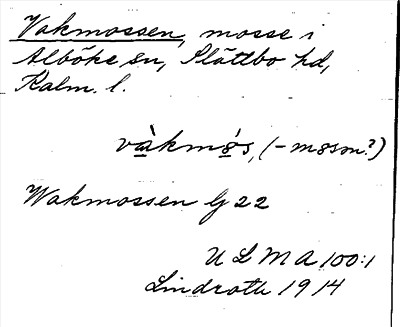 Vakmossen, mosse i
Alböke sn, Slättbo hd,
Kalm. l.
vàkmós, (-mosən?)
Wakmossen lj 22
ULMA 100:1
Lindroth 1914